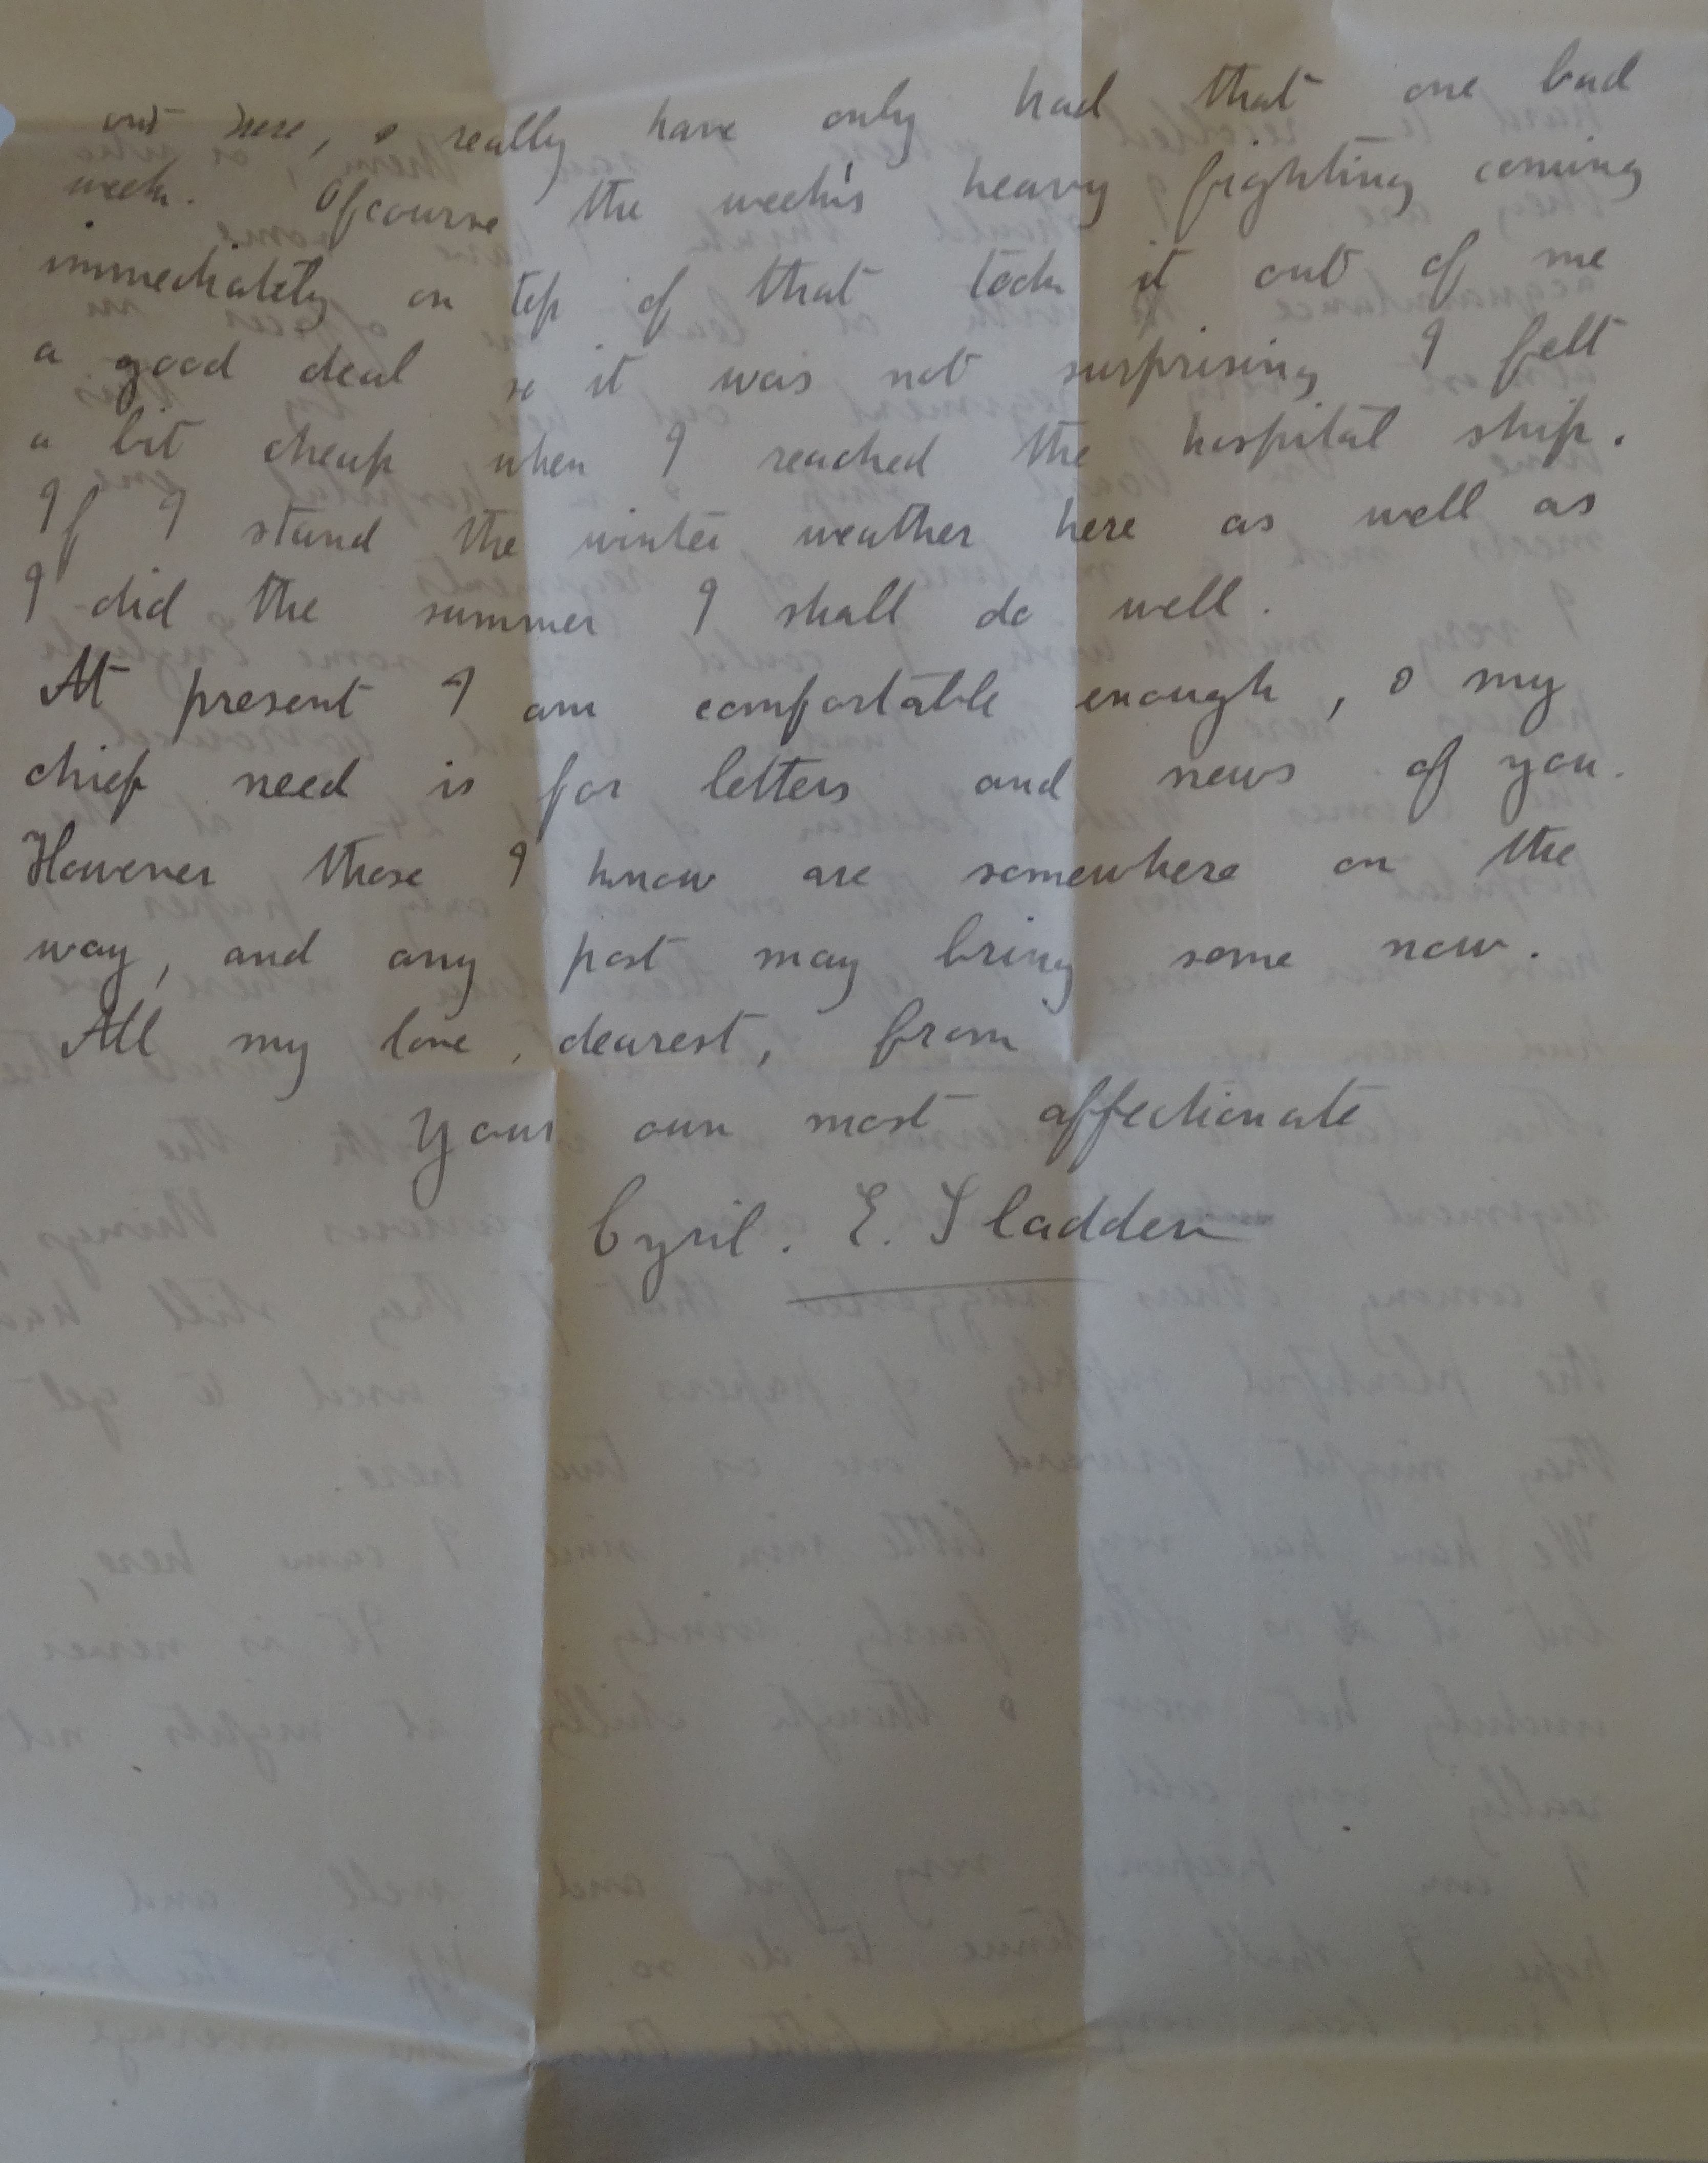 out here, & really have only had that one bad
week. Of course the week's heavy fighting coming
immediately on top of that took it out of me
a good deal so it was not surprising I felt
a bit cheap when I reached the hospital ship.
If I stand the winter weather here as well as
I did the summer I shall do well.
At present I am comfortable enough, & my
chief need is for letters and news of you.
However these I know are somewhere on the
way, and any post may bring some now.
All my love, dearest, from
Your own most affectionate
Cyril. E. Sladden